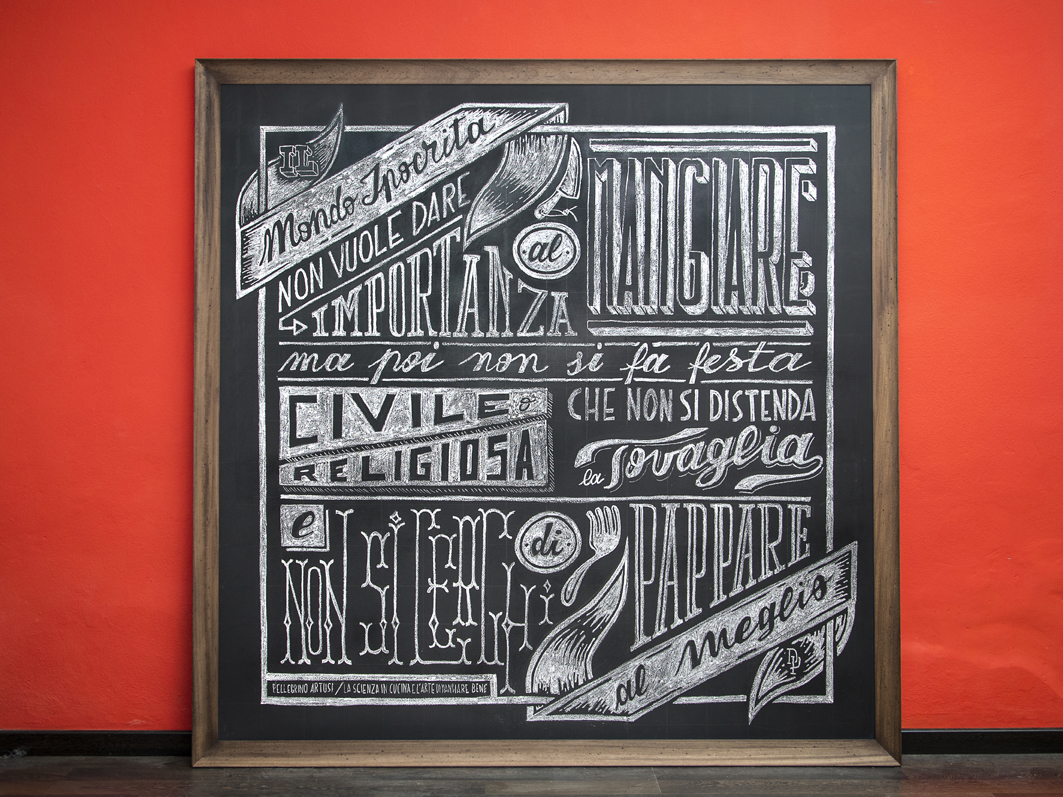 IL
Mondo Ipocrita
NON VUOLE DARE
IMPORTANZA
al
MANGIARE;
ma poi non si fa festa
CIVILE o
RELIGIOSA
CHE NON SI DISTENDA
la Tovaglia
e
NON SI CERCHi
di
PAPPARE
al Meglio
PELLEGRINO ARTUSI / LA SCIENZA IN CUCINA E L'ARTE DI MANGIARE BENE